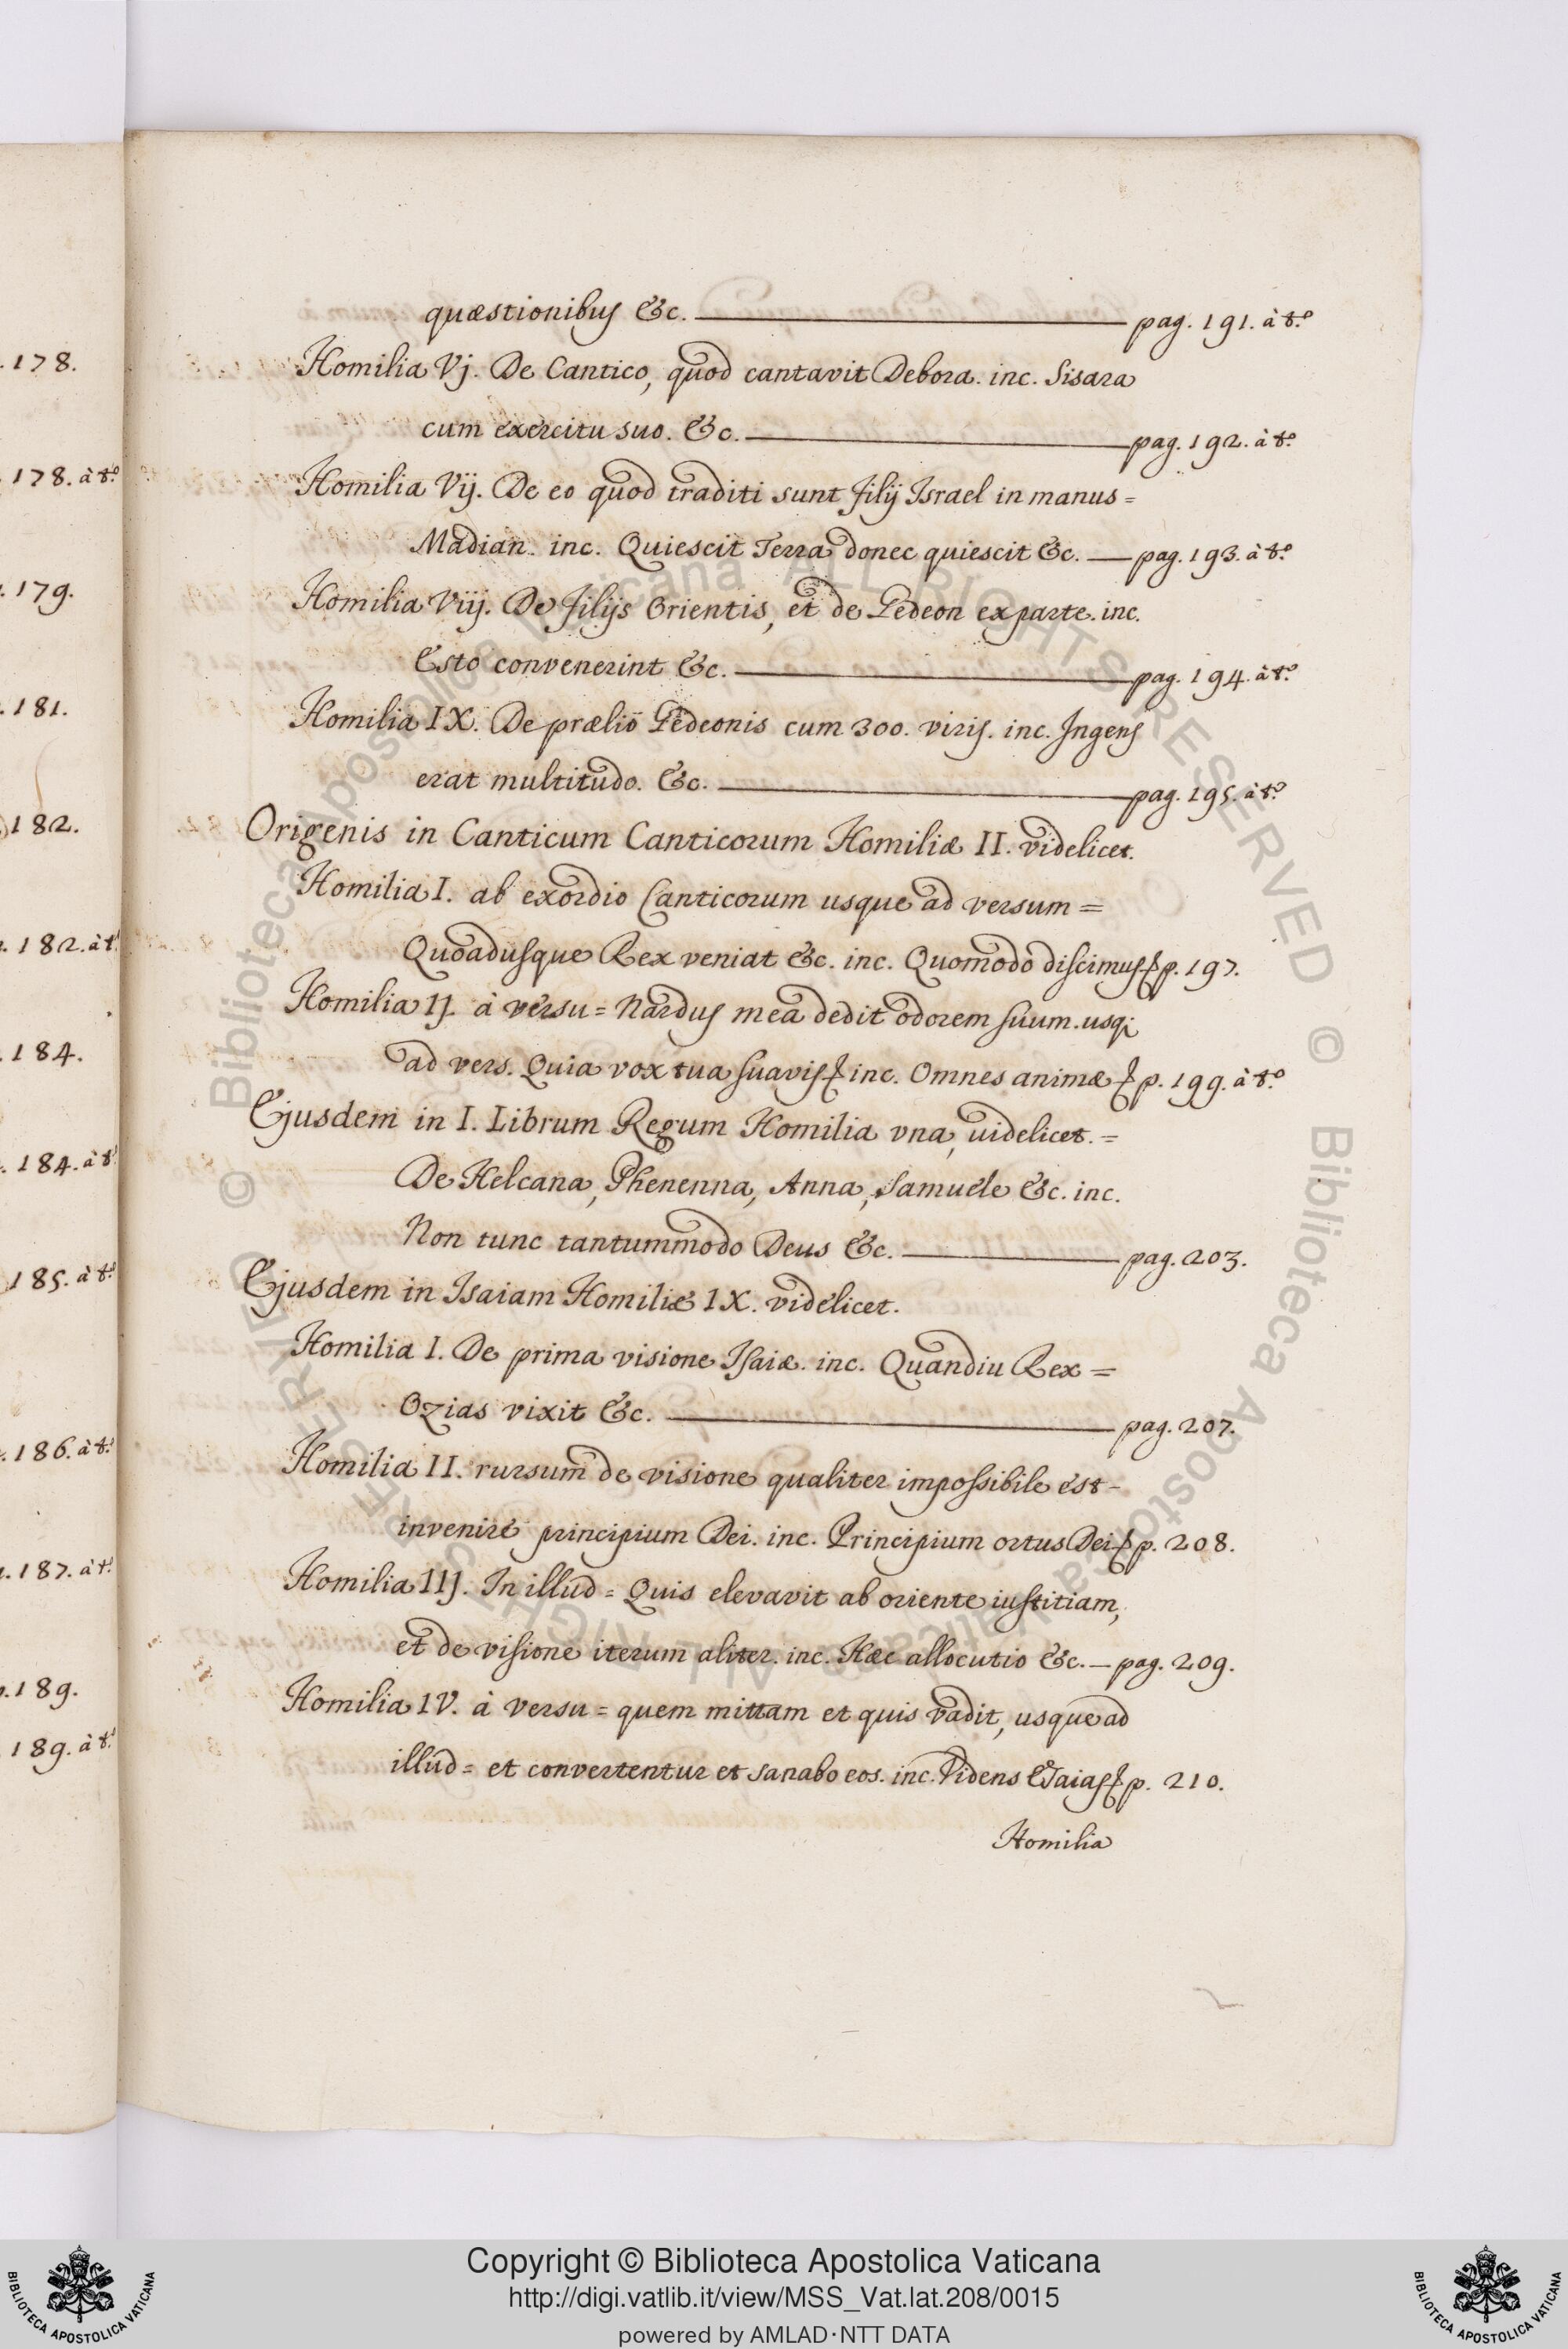 .178.
178. à t.º
.179.
.181.
182.
.182. à t.
.184.
.184. à t.
185. à t.º
.186. à t.º
.187. à t.
.189.
189. à t.
quæstionibus &c. pag. 191. à t.º
Homilia Vj. De Cantico, quod cantavit Debora. inc. Sisara
cum exercitu suo. &c. pag. 192. à t.º
Homilia Vij. De eo quod traditi sunt filij Israel in manus =
Madian. inc. Quiescit Terra donec quiescit &c. pag. 193. à t.º
Homilia Viij. De filijs Orientis, et de Gedeon ex parte. inc.
Esto convenerint &c. pag. 194. à t.º
Homilia IX. De prælio Gedeonis cum 300. viris. inc. Ingens
erat multitudo. &c. pag. 195. à t.º
Origenis in Canticum Canticorum Homiliæ II. videlicet.
Homilia I. ab exordio Canticorum usque ad versum =
Quoadusque Rex veniat &c. inc. Quomodo discimus p. 197.
Homilia IJ. à versu = Nardus mea dedit odorem suum. usq;
ad vers. Quia vox tua suavis inc. Omnes animæ p. 199. à t.º
Ejusdem in I. Librum Regum Homilia vna, uidelicet. =
De Helcana, Phenenna, Anna, Samuele &c. inc.
Non tunc tantummodo Deus &c. pag. 203.
Ejusdem in Isaiam Homiliæ IX. videlicet.
Homilia I. De prima visione Isaiæ. inc. Quandiu Rex =
Ozias vixit &c. pag. 207.
Homilia II. rursum de visione qualiter impossibile est -
invenire principium Dei. inc. Principium ortus Dei p. 208.
Homilia IIJ. In illud = Quis elevavit ab oriente iustitiam,
et de visione iterum aliter. inc. Hæc allocutio &c. — pag. 209.
Homilia IV. à versu = quem mittam et quis vadit, usque ad
illud = et convertentur et sanabo eos. inc. Videns Esaias p. 210.
Homilia
© Biblioteca Apostolica Vaticana ALL RIGHTS RESERVED © Biblioteca Apostolica Vaticana ALL RIGHTS RESERVED
Copyright © Biblioteca Apostolica Vaticana
http://digi.vatlib.it/view/MSS_Vat.lat.208/0015
powered by AMLAD·NTT DATA
BIBLIOTECA APOSTOLICA VATICANA
BIBLIOTECA APOSTOLICA VATICANA